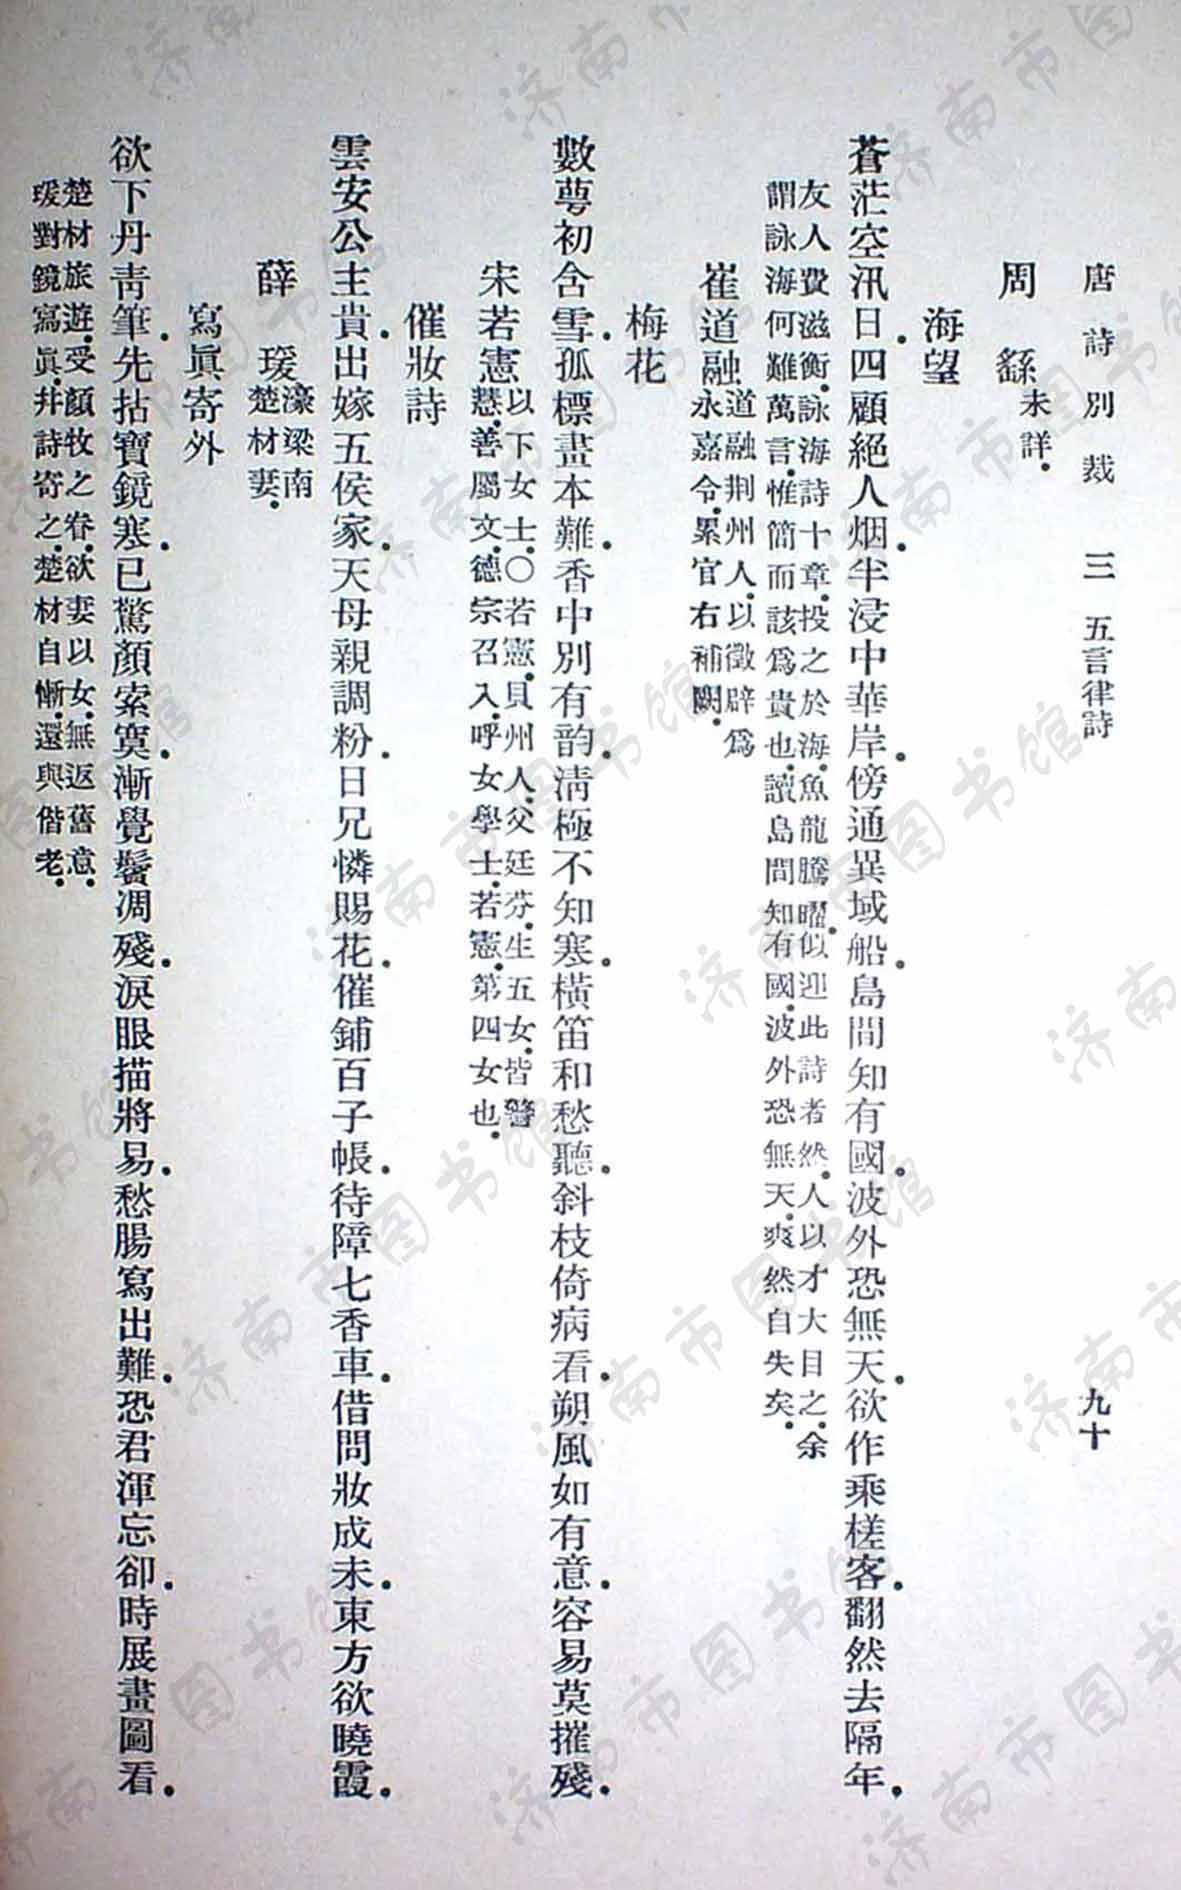 唐詩別裁　三　五言律詩　九十
周繇未詳．
海望
蒼茫空汛日．四顧絕人烟．半浸中華岸．傍通異域船．島間知有國．波外恐無天．欲作乘槎客．翻然去隔年．
友人費滋衡．詠海詩十章．投之於海．魚龍騰曜．似迎此詩者然．人以才大目之．余
謂詠海何難萬言．惟簡而該爲貴也．讀島間知有國．波外恐無天．爽然自失矣．
崔道融道融荆州人．以徵辟爲
永嘉令．累官右補闕．
梅花
數萼初含雪．孤標畫本難．香中別有韵．清極不知寒．橫笛和愁聽．斜枝倚病看．朔風如有意．容易莫摧殘．
宋若憲以下女士．○若憲．貝州人．父廷芬．生五女．皆警
慧．善屬文．德宗召入．呼女學士．若憲．第四女也．
催妝詩
雲安公主貴．出嫁五侯家．天母親調粉．日兄憐賜花．催鋪百子帳．待障七香車．借問妝成未．東方欲曉霞．
薛瑗濠梁南
楚材妻．
寫眞寄外
欲下丹靑筆．先拈寶鏡寒．已驚顏索寞．漸覺鬢凋殘．淚眼描將易．愁腸寫出難．恐君渾忘卻．時展畫圖看．
楚材旅遊．受顏牧之眷．欲妻以女．無返舊意．
瑗對鏡寫眞．幷詩寄之．楚材自慚．還與偕老．
济南市图书馆